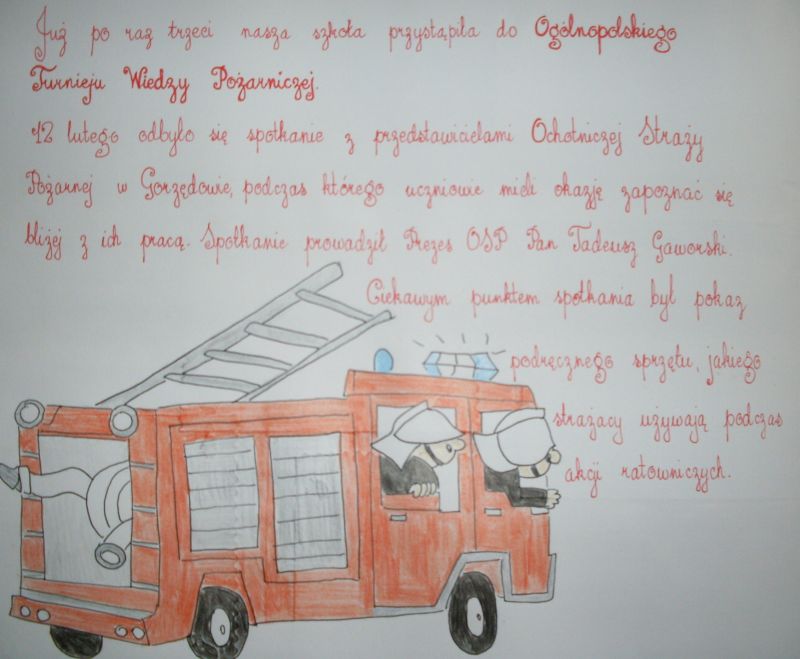 Już po raz trzeci nasza szkoła przystąpiła do Ogólnopolskiego
Turnieju Wiedzy Pożarniczej.
12 lutego odbyło się spotkanie z przedstawicielami Ochotniczej Straży
Pożarnej w Gorzędowie, podczas którego uczniowie mieli okazję zapoznać się
bliżej z ich pracą. Spotkanie prowadził Prezes OSP Pan Tadeusz Gaworski.
Ciekawym punktem spotkania był pokaz
podręcznego sprzętu, jakiego
strażacy używają podczas
akcji ratowniczych.